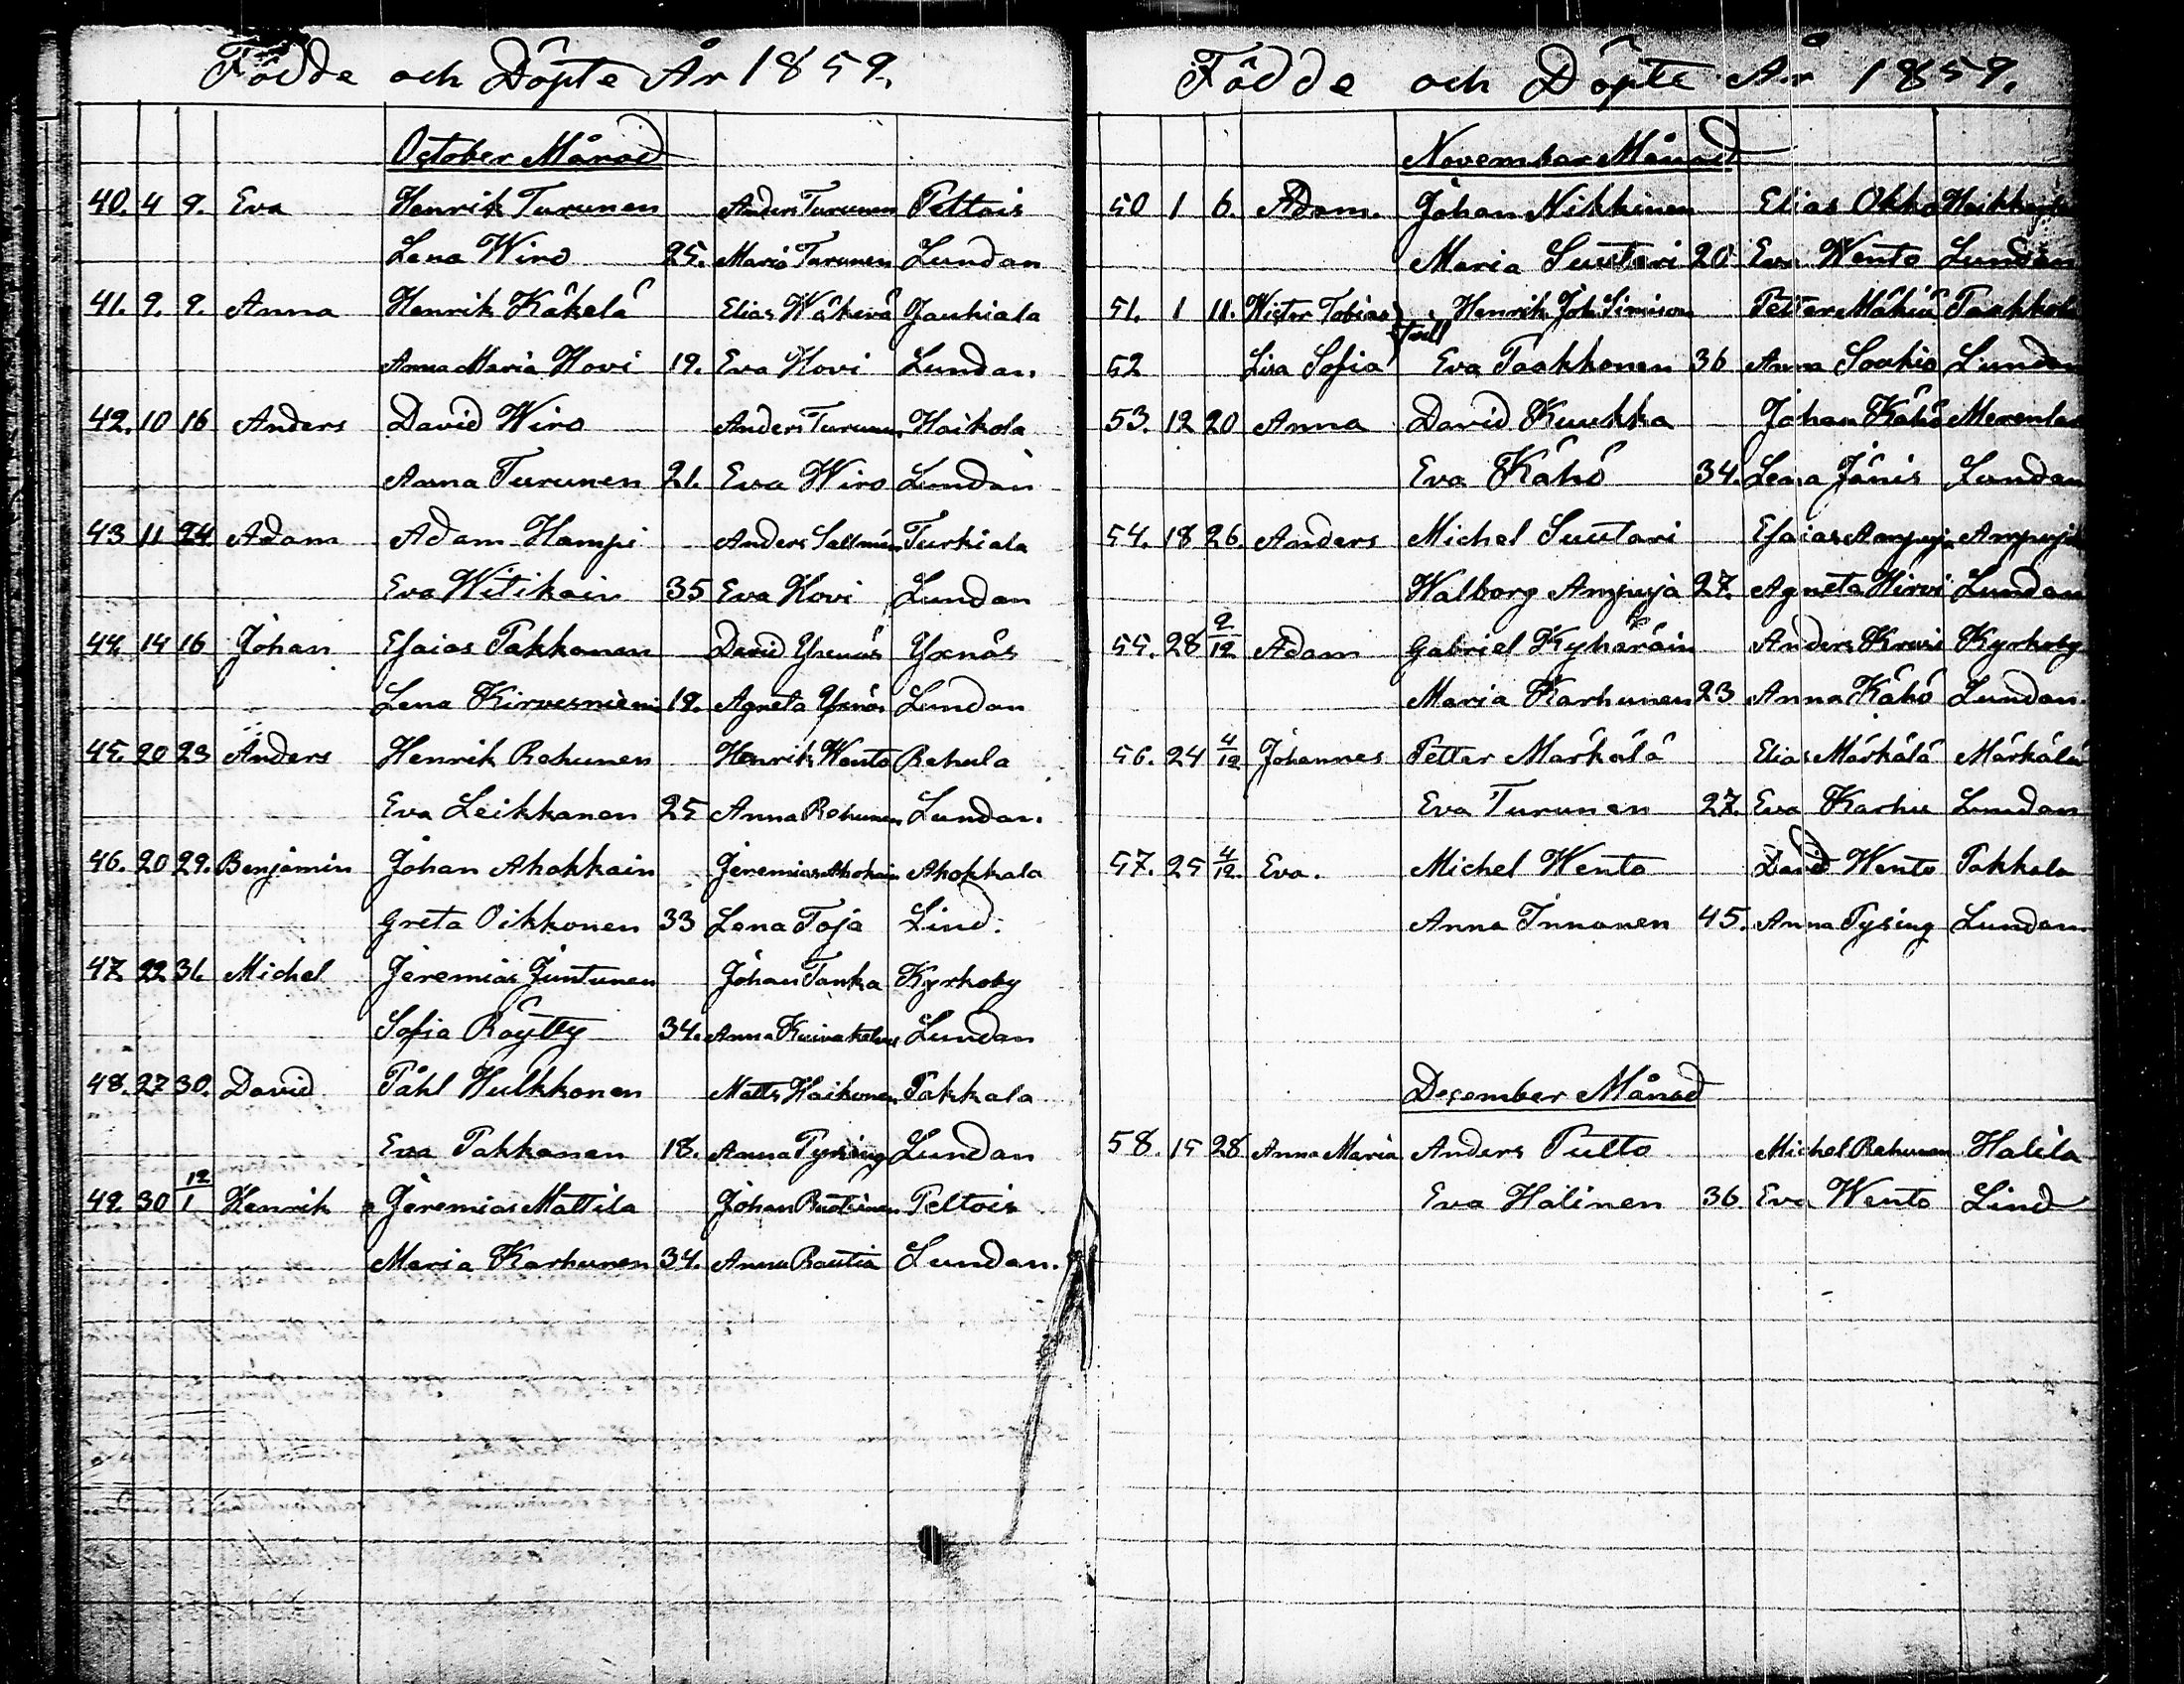 Födde och Döpte År 1859.
October Månad
40. 4 9. Eva Henrik Turunen Anders Turunen Peltois
Lena Wiro 25. Maria Turunen Lundan
41. 9. 9. Anna Henrik Käkelä Elias Wäkevä Jauhiala
Anna Maria Hovi 19. Eva Hovi Lundan.
42. 10 16 Anders David Wiro Anders Turunen Haikola
Anna Turunen 21. Eva Wiro Lundan
43 11 24 Adam Adam Hampi Anders Turkiala
Eva Witikain 35 Eva Hovi Lundan
44. 14 16 Johan Esaias Pakkanen David Yxnäs Yxnäs
Lena Kirvesniemi 19. Agneta Yxnäs Lundan
45. 20 23 Anders Henrik Rehunen Henrik Wento Rehula
Eva Leikkanen 25 Anna Rehunen Lundan.
46. 20 29. Benjamin Johan Ahokkain Jeremias Ahokain Ahokkala
Greta Oikkonen 33 Lena Toja Lind.
47. 22 31. Michel Jeremias Juntunen Johan Tanka Kyrkoby
Sofia Röytty 34. Anna Lundan
48. 27 30. David Påhl Hulkkonen Matts Haikonen Pakkala
Eva Pakkanen 18. Anna Pysing Lundan
49. 30 12/1 Henrik Jeremias Mattila Johan Peltois
Maria Karhunen 34. Anna Rautia Lundan.
Födde och Döpte År 1859.
November Månad
50 1 6. Adam. Johan Nikkinen Elias Okko
Maria Suutari 20 Eva Wento Lundan
51. 1 11. Wictor Tobias Henrik Joh. Simison Petter Mäkiä Paakkola
52 Lisa Sofia Tvill Eva Paakkonen 36 Anna Soikia Lundan
53. 12 20 Anna David Kuukka Johan Kähö Merenla
Eva Kähö 34. Lena Jänis Lundan
54. 18 26. Anders Michel Suutari Esaias Ampuja Ampuja
Walborg Ampuja 27. Agneta Hirvi Lundan
55. 28 2/12 Adam Gabriel Kyheröin Anders Kyrkoby
Maria Karhunen 23 Anna Kähö Lundan.
56. 24 4/12 Johannes Petter Märkälä Elias Märkälä Märkälä
Eva Turunen 27. Eva Karhu Lundan
57. 25 4/12. Eva. Michel Wento David Wento Pakkala
Anna Innanen 45. Anna Pysing Lundan
December Månad
58. 15 28 Anna Maria Anders Pulto Michel Rehunen Halila
Eva Halinen 36. Eva Wento Lind